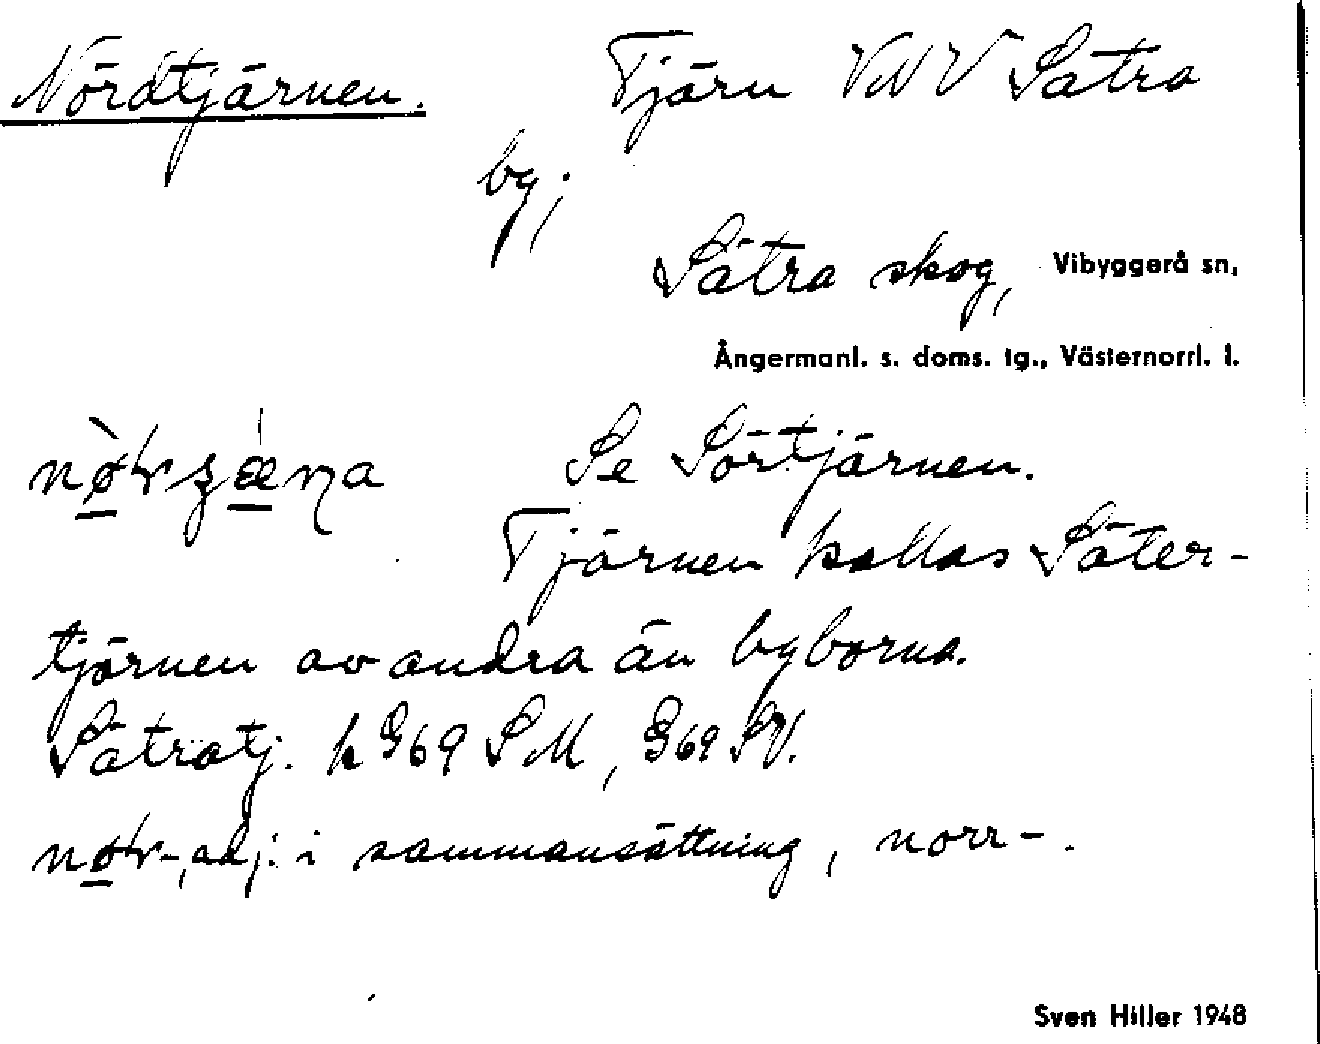 Nördtjärnen. Tjärn VNV Sätra
by;
Sätra skog, Vibyggerå sn,
Ångermanl. s. doms. tg., Västernorrl. l.
Se Sörtjärnen.
Tjärnen kallas Säter-
tjärnen av andra än byborna.
Sätratj. k G69 SM, G69 SV.
adj. i sammansättning, norr-.
Sven Hiller 1948